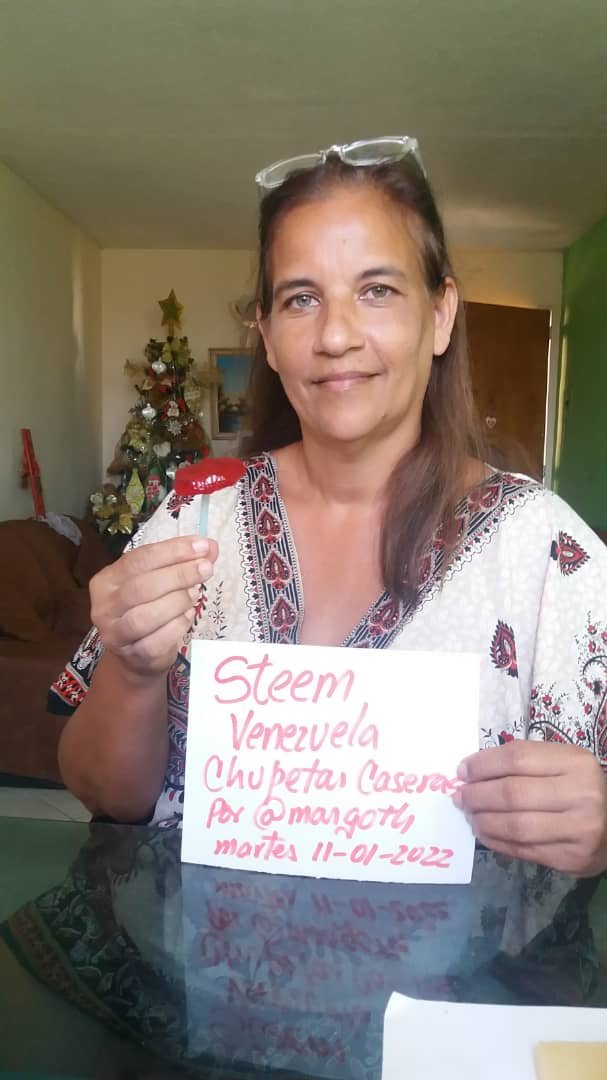 Steem
Venezuela
Chupetas Caseras
por @margoth
martes 11-01-2022